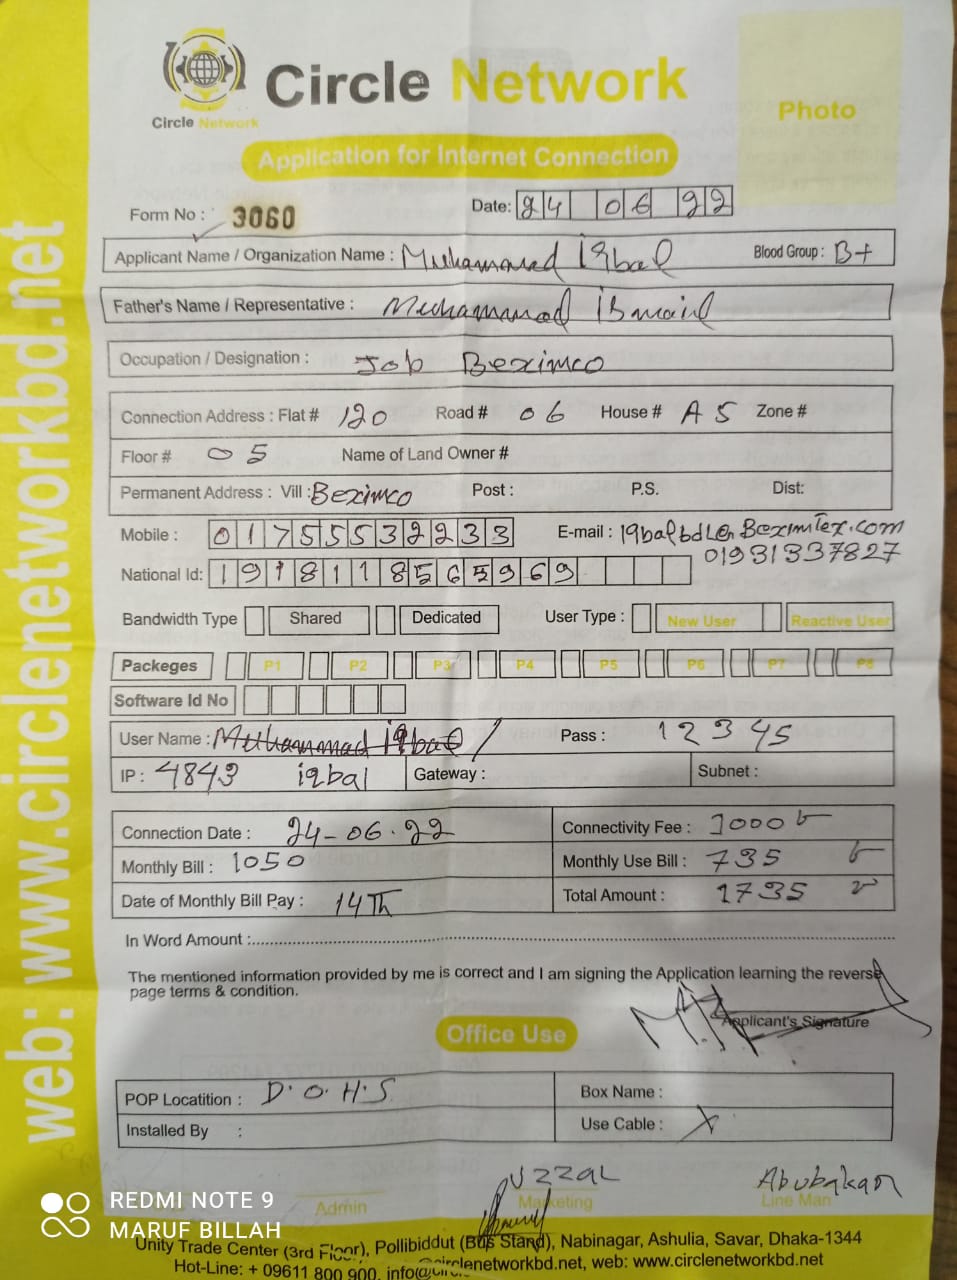 Circle Network
Circle Network
Photo
Application for Internet Connection
Form No : 3060
Date: 24 06 22
Applicant Name / Organization Name : Muhammad iqbal Blood Group : B+
Father's Name / Representative : Muhammad ismail
Occupation / Designation : Job Beximco
Connection Address : Flat # 120 Road # 06 House # A 5 Zone #
Floor # 05 Name of Land Owner #
Permanent Address : Vill : Beximco Post : P.S. Dist:
Mobile : 01755532233 E-mail :
01931337827
National Id: 1918118565969
Bandwidth Type Shared Dedicated User Type : New User Reactive User
Packeges P1 P2 P3 P4 P5 P6 P7 P8
Software Id No
User Name : Muhammad iqbal Pass : 12345
IP : 4843 iqbal Gateway : Subnet :
Connection Date : 24-06-22 Connectivity Fee : 1000
Monthly Bill : 1050 Monthly Use Bill : 735
Date of Monthly Bill Pay : 14Th Total Amount : 1735
In Word Amount :
The mentioned information provided by me is correct and I am signing the Application learning the reverse
page terms & condition.
Applicant's Signature
Office Use
POP Locatition : D.O.H.S Box Name :
Installed By : Use Cable : X
UZZAL Abubakar
Admin Marketing Line Man
REDMI NOTE 9
MARUF BILLAH
Unity Trade Center (3rd Floor), Pollibiddut (Bus Stand), Nabinagar, Ashulia, Savar, Dhaka-1344
Hot-Line: + 09611 800 900, web: www.circlenetworkbd.net
web: www.circlenetworkbd.net